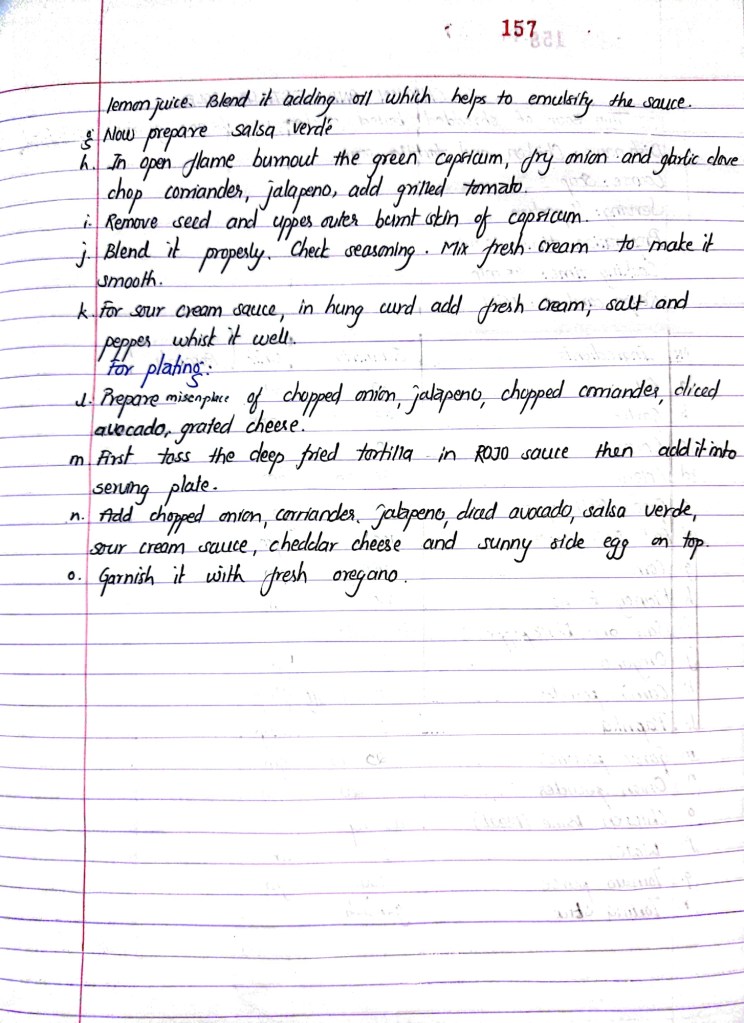 157
lemon juice. Blend it adding oil which helps to emulsify the sauce.
g. Now prepare salsa verdé
h. In open flame burnout the green capsicum, fry onion and garlic clove
chop corriander, jalapeno, add grilled tomato.
i. Remove seed and upper outer burnt skin of capsicum.
j. Blend it properly. Check seasoning. Mix fresh cream to make it
smooth.
k. For sour cream sauce, in hung curd add fresh cream, salt and
pepper whisk it well.
For plating:
l. Prepare misenplace of chopped onion, jalapeno, chopped corriander, diced
avocado, grated cheese.
m. First toss the deep fried tortilla in ROJO sauce then add it into
serving plate.
n. Add chopped onion, corriander, jalapeno, diced avocado, salsa verde,
sour cream sauce, cheddar cheese and sunny side egg on top.
o. Garnish it with fresh oregano.